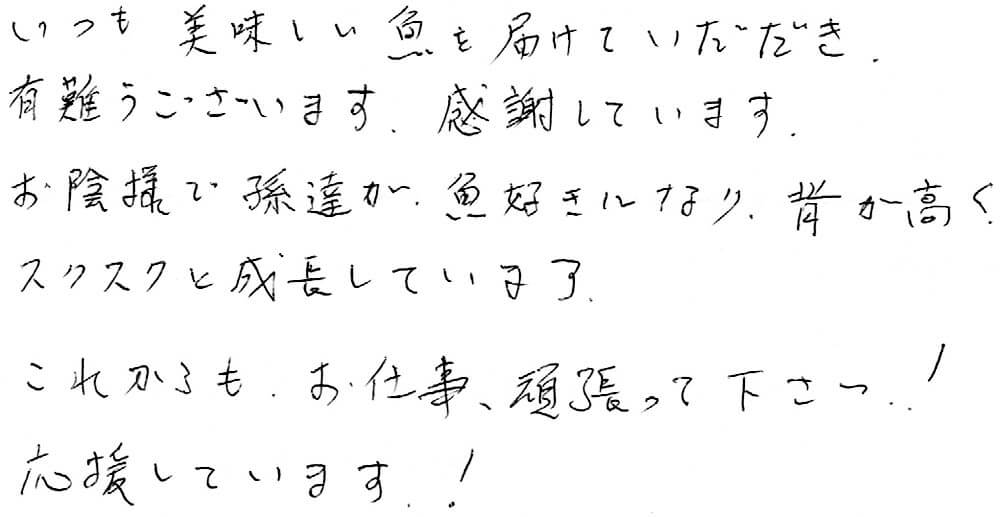 いつも 美味しい 魚を 届けていただき、
有難うございます。感謝しています。
お陰様で 孫達が、魚好きになり、背が高く
スクスクと成長しています。
これからも、お仕事、頑張って下さい！
応援しています！